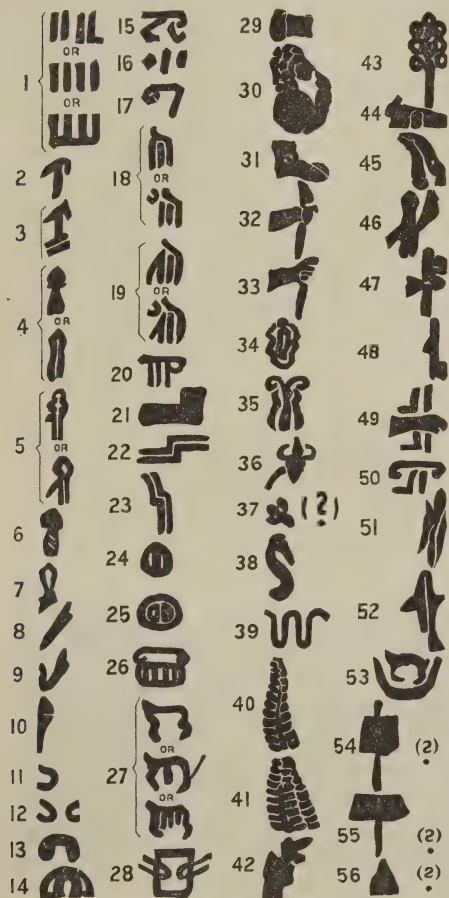 1
OR
OR
2
3
4
OR
5
OR
6
7
8
9
10
11
12
13
14
15
16
17
18
OR
19
OR
20
21
22
23
24
25
26
27
OR
OR
28
29
30
31
32
33
34
35
36
37 (?)
38
39
40
41
42
43
44
45
46
47
48
49
50
51
52
53
54 (2)
55 (2)
56 (2)